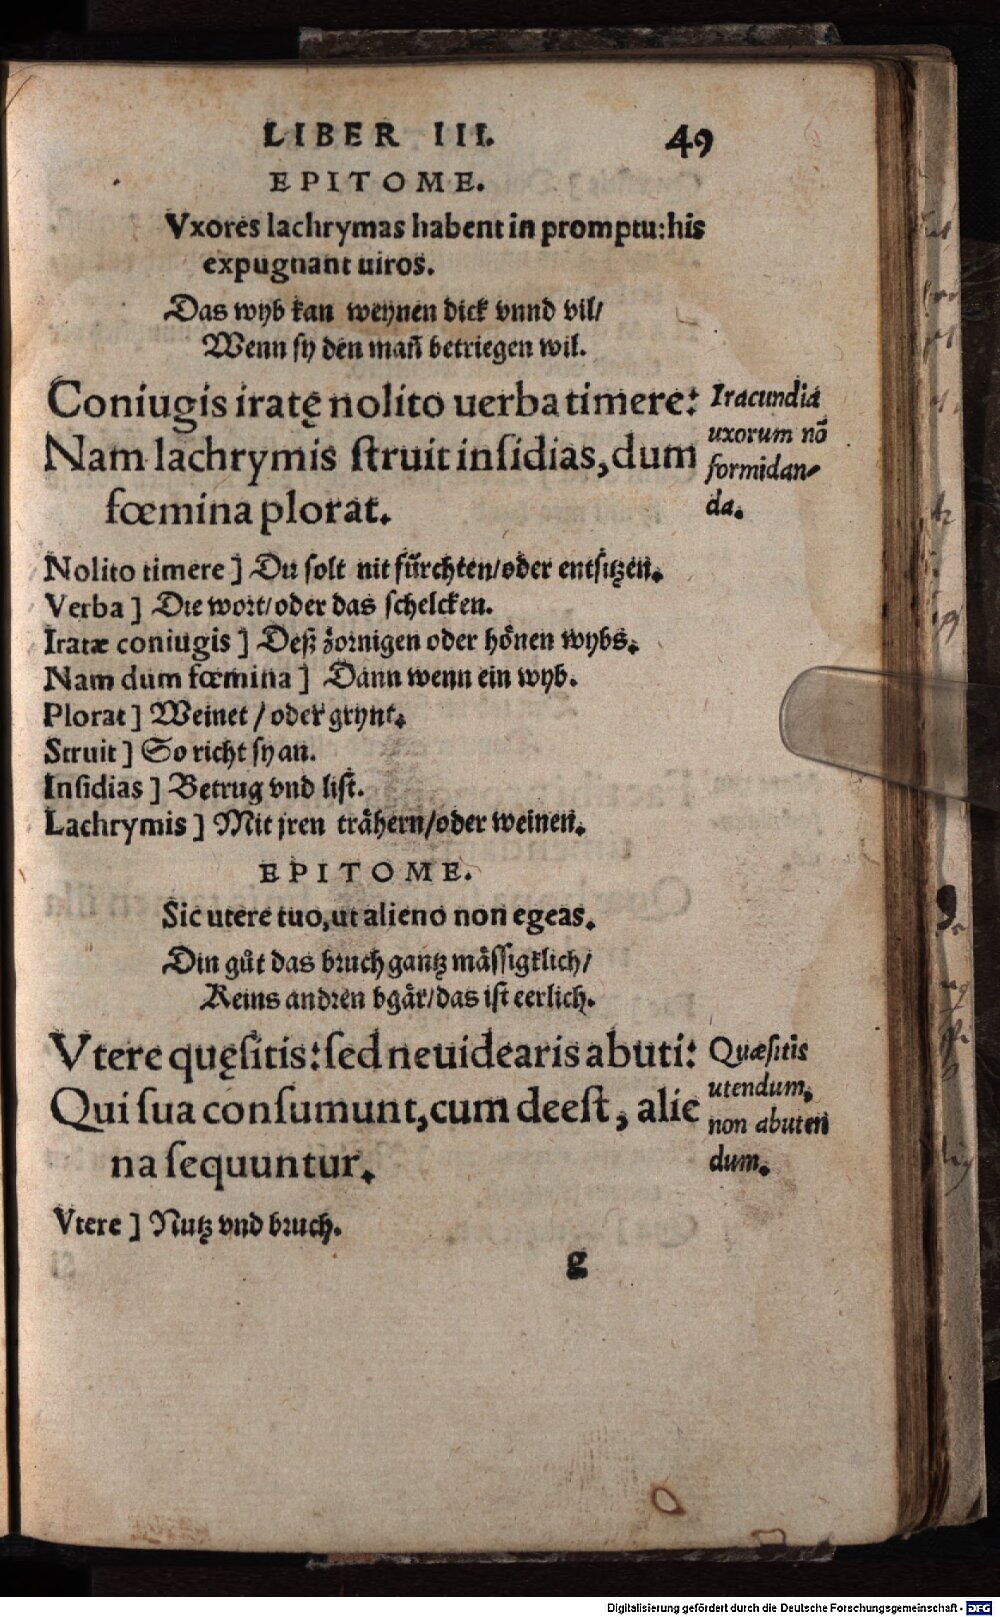 LIBER III. 49
EPITOME.
Vxores lachrymas habent in promptu: his
expugnant uiros.
Das wyb kan weynen dick vnnd vil/
Wenn sy den mañ betriegen wil.
Coniugis iratę nolito uerba timere:
Nam lachrymis struit insidias, dum
fœmina plorat.
Iracundia
uxorum nõ
formidan-
da.
Nolito timere] Du solt nit fürchten/oder entsitzen.
Verba] Die wort/oder das schelcken.
Iratæ coniugis] Deß zornigen oder hönen wybs.
Nam dum fœmina] Dann wenn ein wyb.
Plorat] Weinet/oder grynt.
Struit] So richt sy an.
Insidias] Betrug vnd list.
Lachrymis] Mit jren trähern/oder weinen.
EPITOME.
Sic utere tuo, ut alieno non egeas.
Din gůt das bruch gantz mässigklich/
Keins andren bgär/das ist eerlich.
Vtere quęsitis: sed ne uidearis abuti:
Qui sua consumunt, cum deest, alie
na sequuntur.
Quæsitis
utendum,
non abuten
dum.
Vtere] Nutz vnd bruch.
g
Digitalisierung gefördert durch die Deutsche Forschungsgemeinschaft - DFG